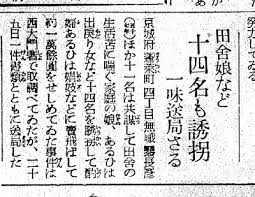 田舍娘など
十四名も誘拐
一味送局さる
京城府蓬萊町四丁目無職
ほか十一名は共謀して田舍の
生活苦に喘ぐ家庭の娘、あるひは
出戻り女など十四名を誘拐して酌
婦あるひは娼妓などに賣飛ばして
約一萬餘圓をせしめてゐた事件は
西大門署で取調べてゐたが、二十
五日一件書類とともに送局した